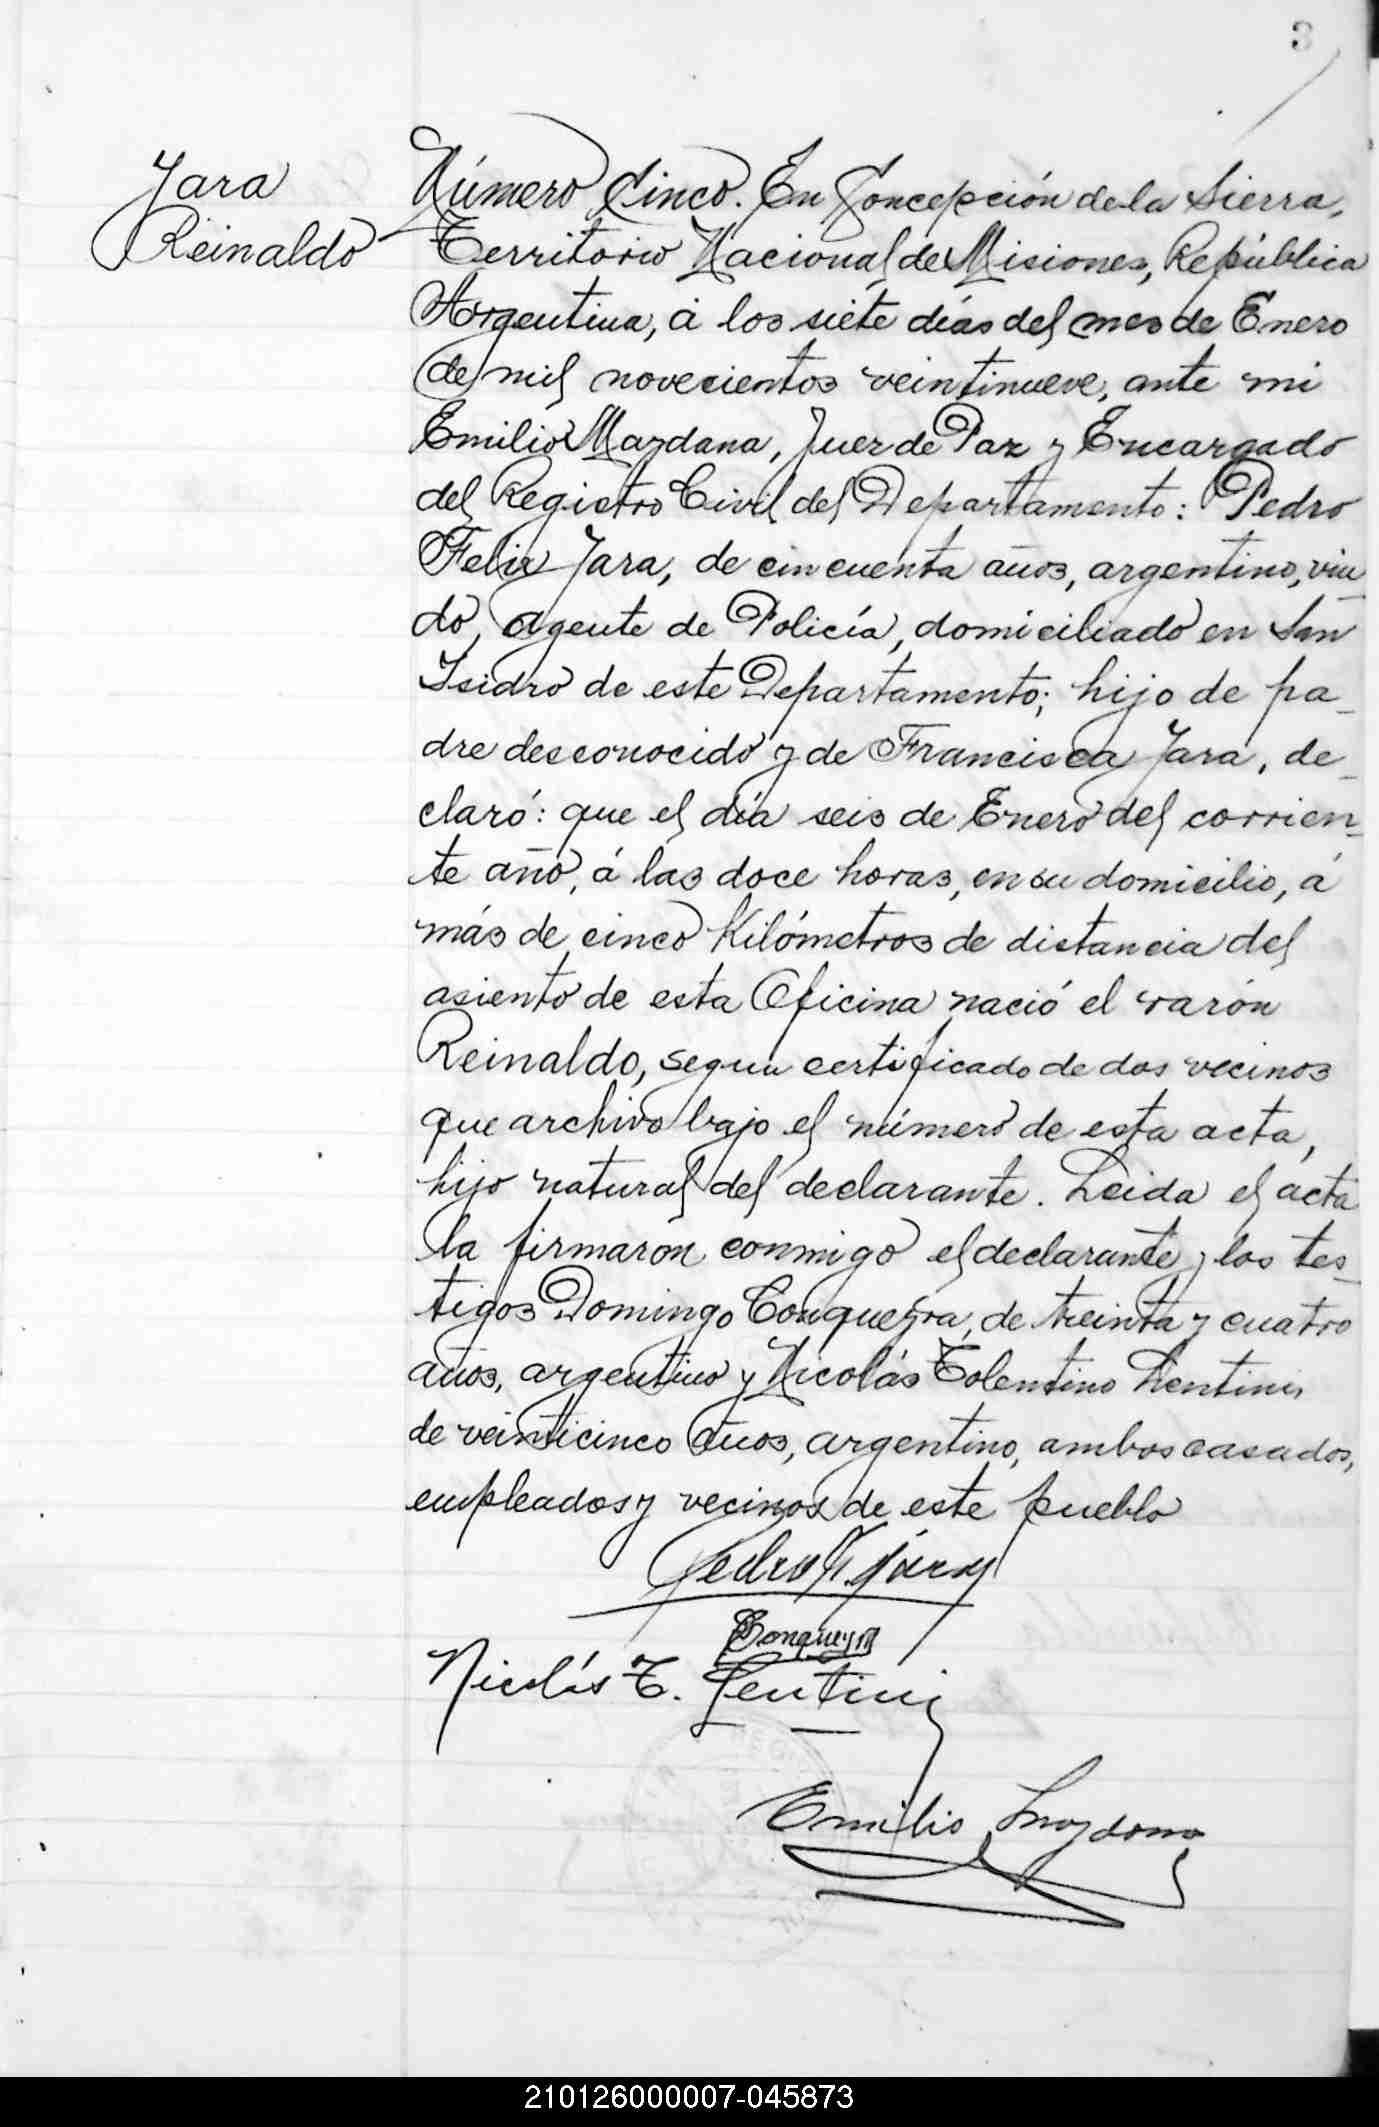 3
Jara
Reinaldo
Número Cinco. En Concepción de la Sierra,
Territorio Nacional de Misiones, República
Argentina, á los siete días del mes de Enero
de mil novecientos veintinueve, ante mi
Emilio Maydana, Juez de Paz y Encargado
del Registro Civil del Departamento: Pedro
Felix Jara, de cincuenta años, argentino, viu
do, agente de Policía, domiciliado en San
Isidro de este Departamento; hijo de pa-
dre desconocido y de Francisca Jara, de-
claró: que el día seis de Enero del corrien-
te año, á las doce horas, en su domicilio, á
más de cinco Kilómetros de distancia del
asiento de esta Oficina nació el varón
Reinaldo, segun certificado de dos vecinos
que archivo bajo el número de esta acta,
hijo natural del declarante. Leida el acta
la firmaron conmigo el declarante y los tes-
tigos Domingo Conqueyra, de treinta y cuatro
años, argentino y Nicolás Tolentino Lentini,
de veinticinco años, argentino, ambos casados,
empleados y vecinos de este pueblo
Pedro F. Jara
Nicolás T. Lentini
Emilio Maydana
210126000007-045873